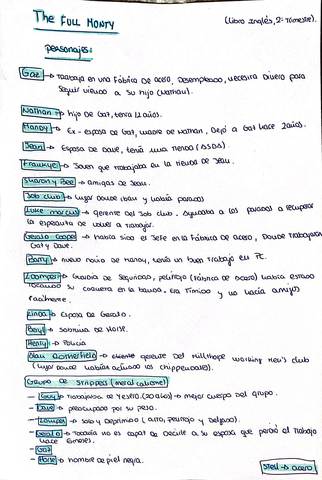 The FULL MONTY
(Libro Inglés, 2º Trimestre).
personajes:
Gaz → Trabaja en una fábrica de acero, Desempleado, necesita dinero para
seguir viendo a su hijo (Nathan).
Nathan → hijo de Gaz, tenía 12 años.
Mandy → Ex-esposa de Gaz, madre de Nathan, Dejó a Gaz hace 2 años.
Jean → Esposa de Dave, tenía una tienda (ASDA).
→ Joven que trabajaba en la tienda de Jean.
Sharon y Bee → amigas de Jean.
Job club → lugar donde iban y había parados
→ gerente del Job club. Ayudaba a los parados a recuperar
la esperanza de volver a trabajar.
Gerald Cooper → había sido el Jefe en la fábrica de acero, Donde trabajaron
Gaz y Dave.
Barry → nuevo novio de Mandy, tenía un buen trabajo
Lomper → Guardia de Seguridad, pelirrojo (fábrica de acero) había estado
tocando su en la banda. Era Tímido y no hacía amigos
fácilmente.
Linda → Esposa de Gerald.
→ Sobrina de Horse.
Henry → Policía
→ gerente del Millthorpe Working Men's club
(lugar donde habían actuado los chippendales).
Grupo de strippers (metal caliente)
- Guy → Trabajador de yeso (20 años) → mejor cuerpo del grupo.
- Dave → preocupado por su peso.
- Lomper → solo y Deprimido (alto, pelirrojo y delgado).
- Gerald → Todavía no es capaz de decirle a su esposa que perdió el trabajo
hace 6 meses.
- Gaz
- Horse → hombre de piel negra.
Steel → acero